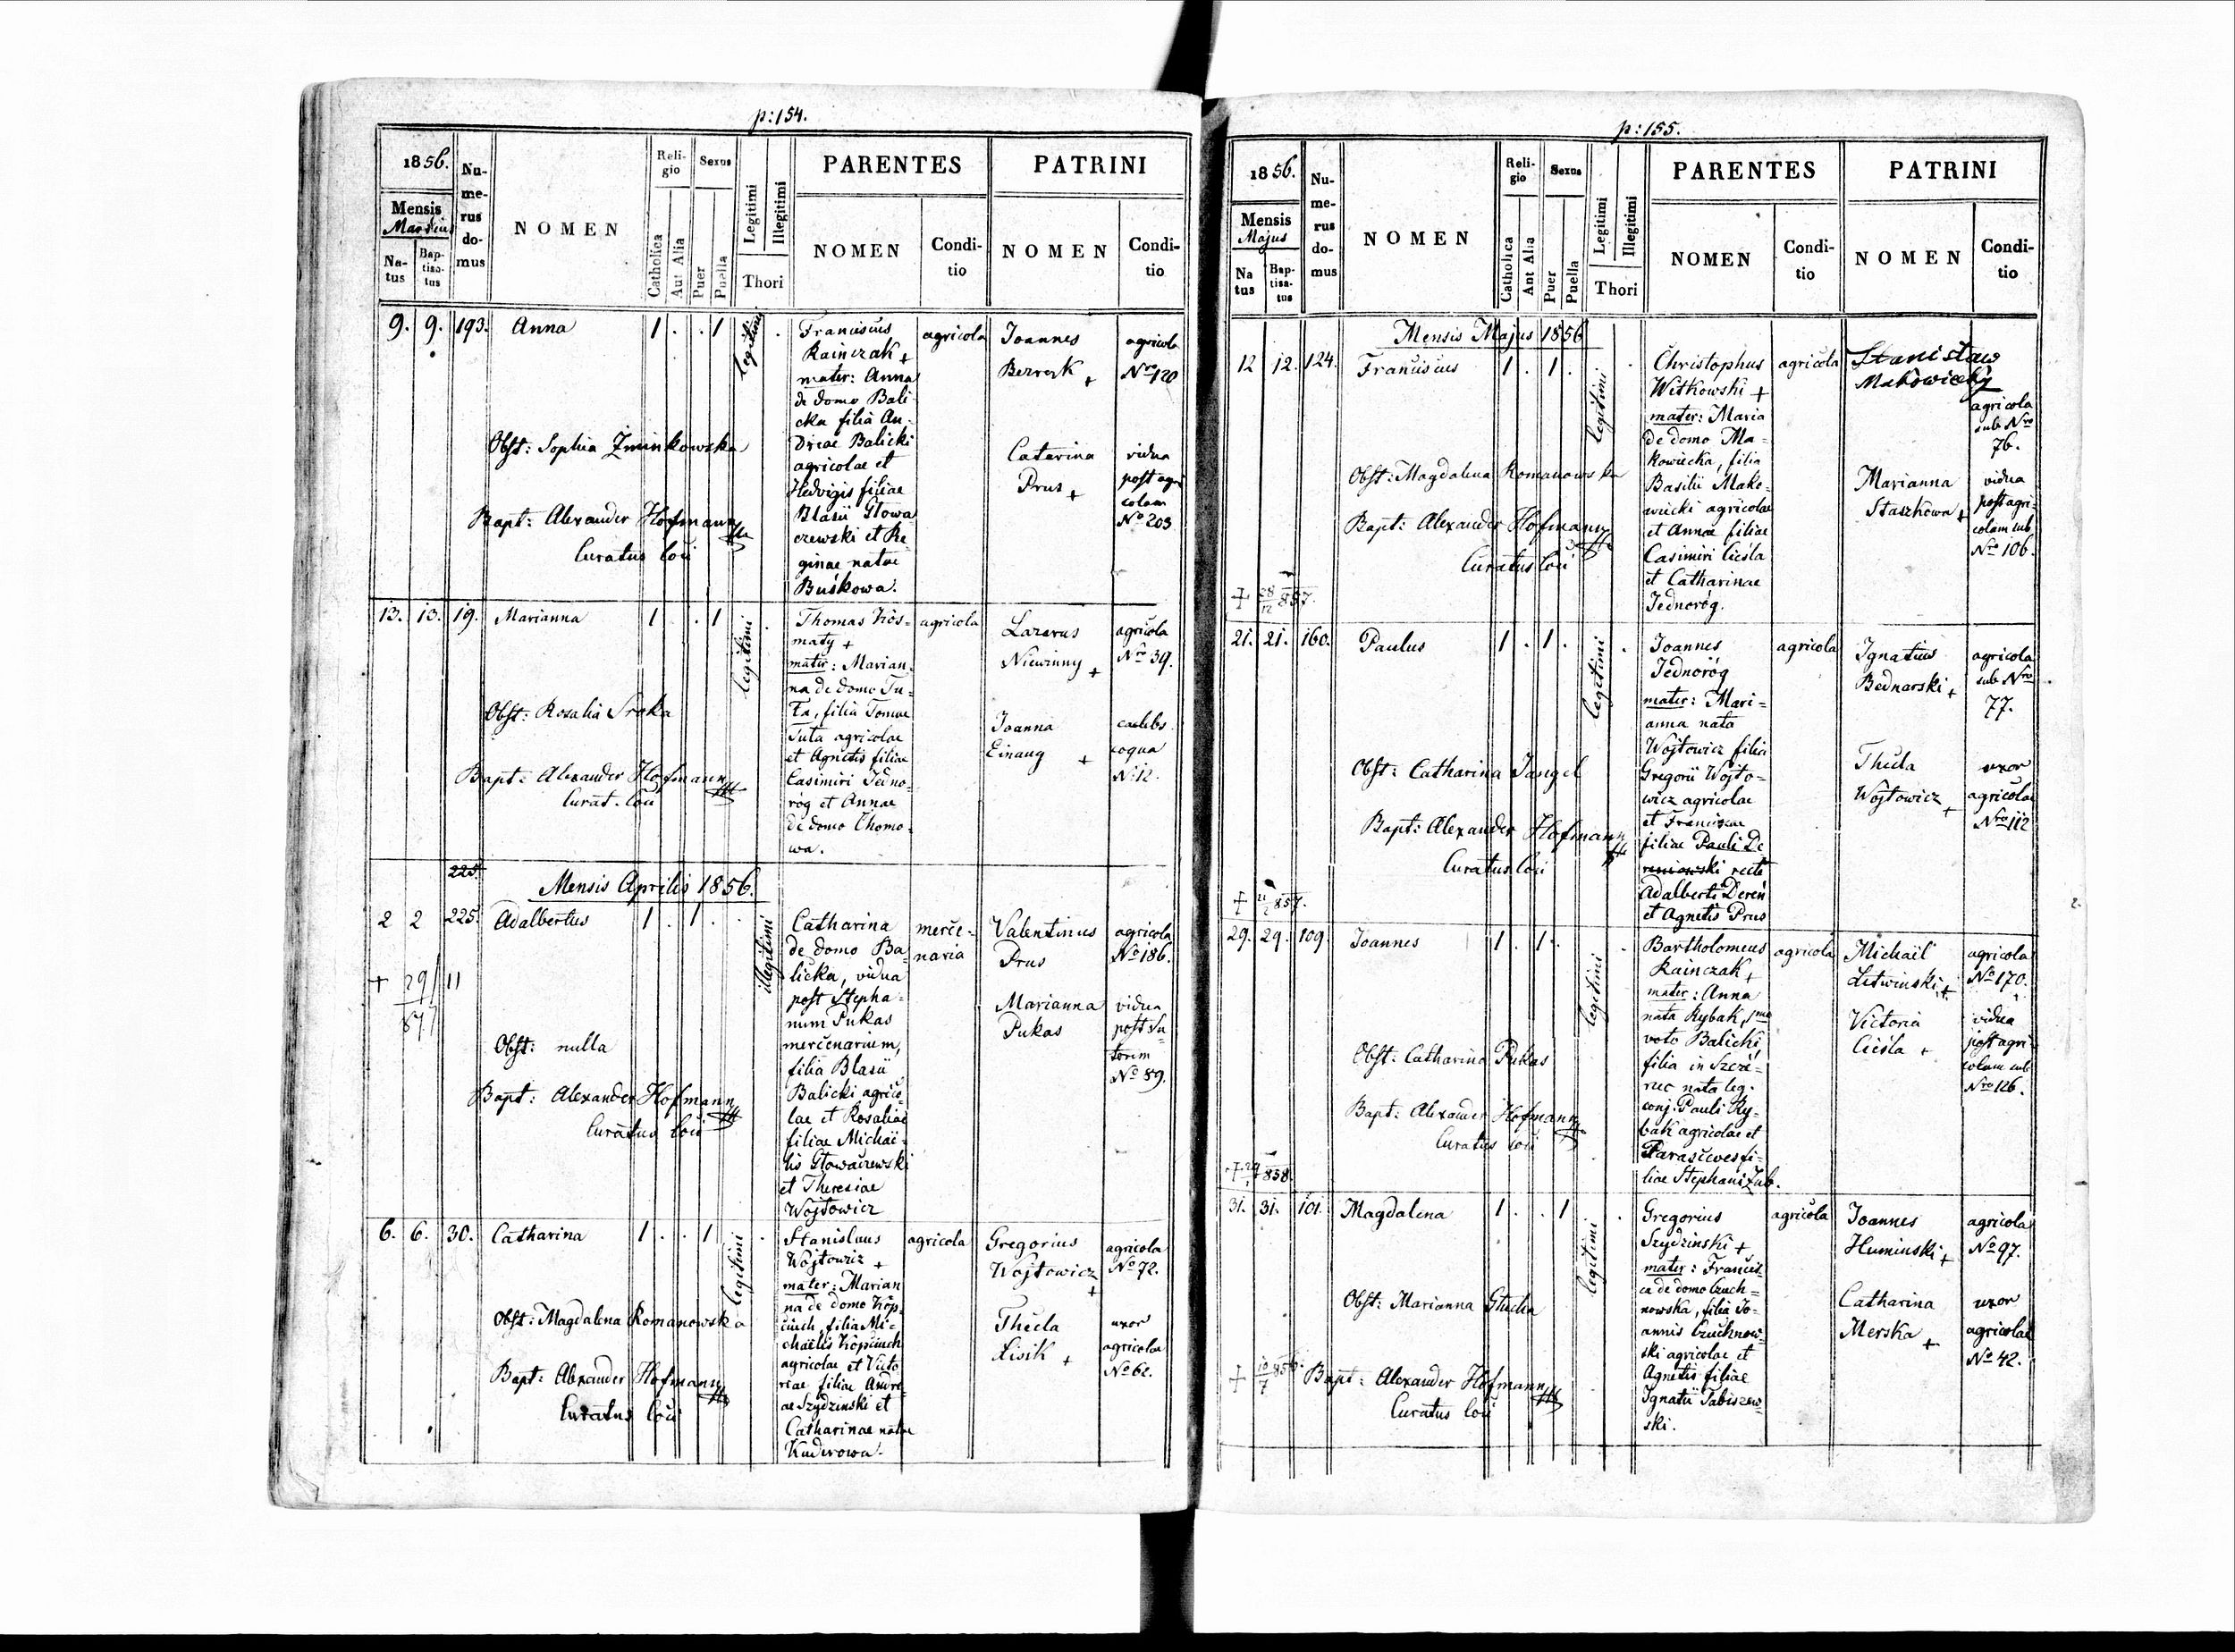 p: 154.
1856.
Mensis
Martius
Na-
tus
Bap-
tisa-
tus
Nu-
me-
rus
do-
mus
NOMEN
Reli-
gio
Catholica
Aut Alia
Sexus
Puer
Puella
Legitimi
Illegitimi
Thori
PARENTES
NOMEN
Condi-
tio
PATRINI
NOMEN
Condi-
tio
9. 9. 193. Anna 1 . . 1 legitimi .
Obst: Sophia Żminkowska
Bapt: Alexander Hofmann
Curatus loci
Franciscus
Rainczak +
mater: Anna
de domo Bali
cka filia An-
dreae Balicki
agricolae et
Hedvigis filiae
Blasii Głowa
czewski et Re
ginae natae
Buśkowa.
agricola
Joannes
+
agricola
Nro 120
Catarina
Prus +
vidua
post agri
colam
No 203
13. 13. 19. Marianna 1 . . 1 legitimi .
Obst: Rosalia Sroka
Bapt: Alexander Hofmann
Curat. loci
Thomas Kos-
maty +
mater: Marian-
na de domo Tu-
ta, filia Tomae
Tuta agricolae
et Agnetis filiae
Casimiri Jedno-
róg et Annae
de domo Chomo-
wa.
agricola
Lazarus
Niewinny +
agricola
Nro 39.
Joanna
Einaug +
caelebs
coqua
No 12.
225.
Mensis Aprilis 1856.
2 2 225. Adalbertus 1 . 1 . . illegitimi
+ 29/11
857
Obst: nulla
Bapt: Alexander Hofmann
Curatus loci
Catharina
de domo Ba-
licka, vidua
post Stepha-
num Pukas
mercenarium,
filia Blasii
Balicki agrico-
lae et Rosaliae
filiae Michaë-
lis Głowaczewski
et Theresiae
Wojtowicz
merce-
naria
Valentinus
Prus
agricola
No 186.
Marianna
Pukas
vidua
post Su-
torem
No 89.
6. 6. 30. Catharina 1 . . 1 legitimi .
Obst: Magdalena Romanowska
Bapt: Alexander Hofmann
Curatus loci
Stanislaus
Wojtowicz +
mater: Marian
na de domo Kop-
ciuch, filia Mi-
chaëlis Kopciuch
agricolae et Victo
riae filiae Andre-
ae Szydzinski et
Catharinae natae
Kuderowa.
agricola
Gregorius
Wojtowicz +
agricola
No 72.
Thecla
Lisik +
uxor
agricolae
No 62.
p: 155.
1856.
Mensis
Majus
Na
tus
Bap-
tisa-
tus
Nu-
me-
rus
do-
mus
NOMEN
Reli-
gio
Catholica
Aut Alia
Sexus
Puer
Puella
Legitimi
Illegitimi
Thori
PARENTES
NOMEN
Condi-
tio
PATRINI
NOMEN
Condi-
tio
Mensis Majus 1856
12 12. 124. Franciscus 1 . 1 . legitimi .
Obst: Magdalena Romanowska
Bapt: Alexander Hofmann
Curatus loci
+ 28/12 857.
Christophus
Witkowski +
mater: Maria
de domo Ma-
kowiecka, filia
Basilii Mako-
wiecki agricolae
et Annae filiae
Casimiri Cieśla
et Catharinae
Jednoróg.
agricola
Stanisław
Makowiecky
agricola
sub Nro
76.
Marianna
Staszkowa +
vidua
post agri-
colam sub
Nro 106.
21. 21. 160. Paulus 1 . 1 . legitimi .
Obst: Catharina Jangel
Bapt: Alexander Hofmann
Curatus loci
Joannes
Jednoróg
mater: Mari-
anna nata
Wojtowicz filia
Gregorii Wojto-
wicz agricolae
et Franciscae
filiae Pauli De
reniowski recte
Adalberti Dereń
et Agnetis Prus
agricola
Ignatius
Bednarski +
agricola
sub Nro
77.
Thecla
Wojtowicz +
uxor
agricolae
Nro 112
29. 29. 109. Joannes 1 . 1 . legitimi .
Obst: Catharina Pukas
Bapt: Alexander Hofmann
Curatus loci
Bartholomeus
Rainczak +
mater: Anna
nata Rybak, 1mo
voto Balicki
filia in Szcze-
rzec nata leg.
conj. Pauli Ry-
bak agricolae et
Parascewes fi-
liae Stephani Zub.
agricola
Michaël
Litwinski +
agricola
No 170.
Victoria
Cieśla +
vidua
post agri-
colam sub
Nro 126.
31. 31. 101. Magdalena 1 . . 1 legitimi .
Obst: Marianna
Bapt: Alexander Hofmann
Curatus loci
Gregorius
Szydzinski +
mater: Francis-
ca de domo Czuch-
nowska, filia Jo-
annis Czuchnow-
ski agricolae et
Agnetis filiae
Ignatii Tabiszew-
ski.
agricola
Joannes
Huminski +
agricola
No 97.
Catharina
Merska +
uxor
agricolae
No 42.